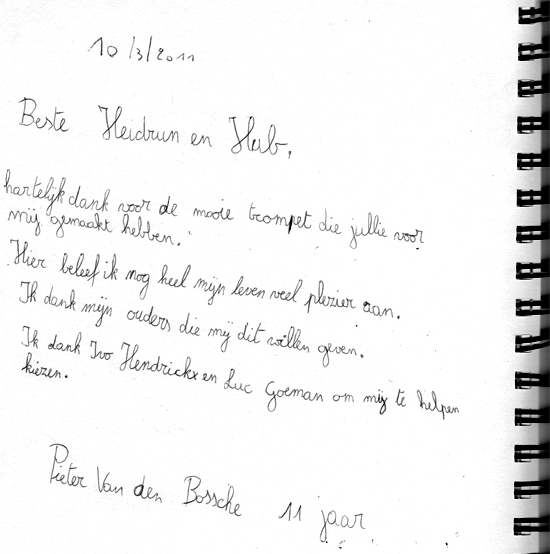 10/3/2011
Beste Heidrun en Hub,
hartelijk dank voor de mooie trompet die jullie voor
mij gemaakt hebben.
Hier beleef ik nog heel mijn leven veel plezier aan.
Ik dank mijn ouders die mij dit willen geven.
Ik dank Ivo Hendrickx en Luc Goeman om mij te helpen
kiezen.
Pieter Van den Bossche 11 jaar